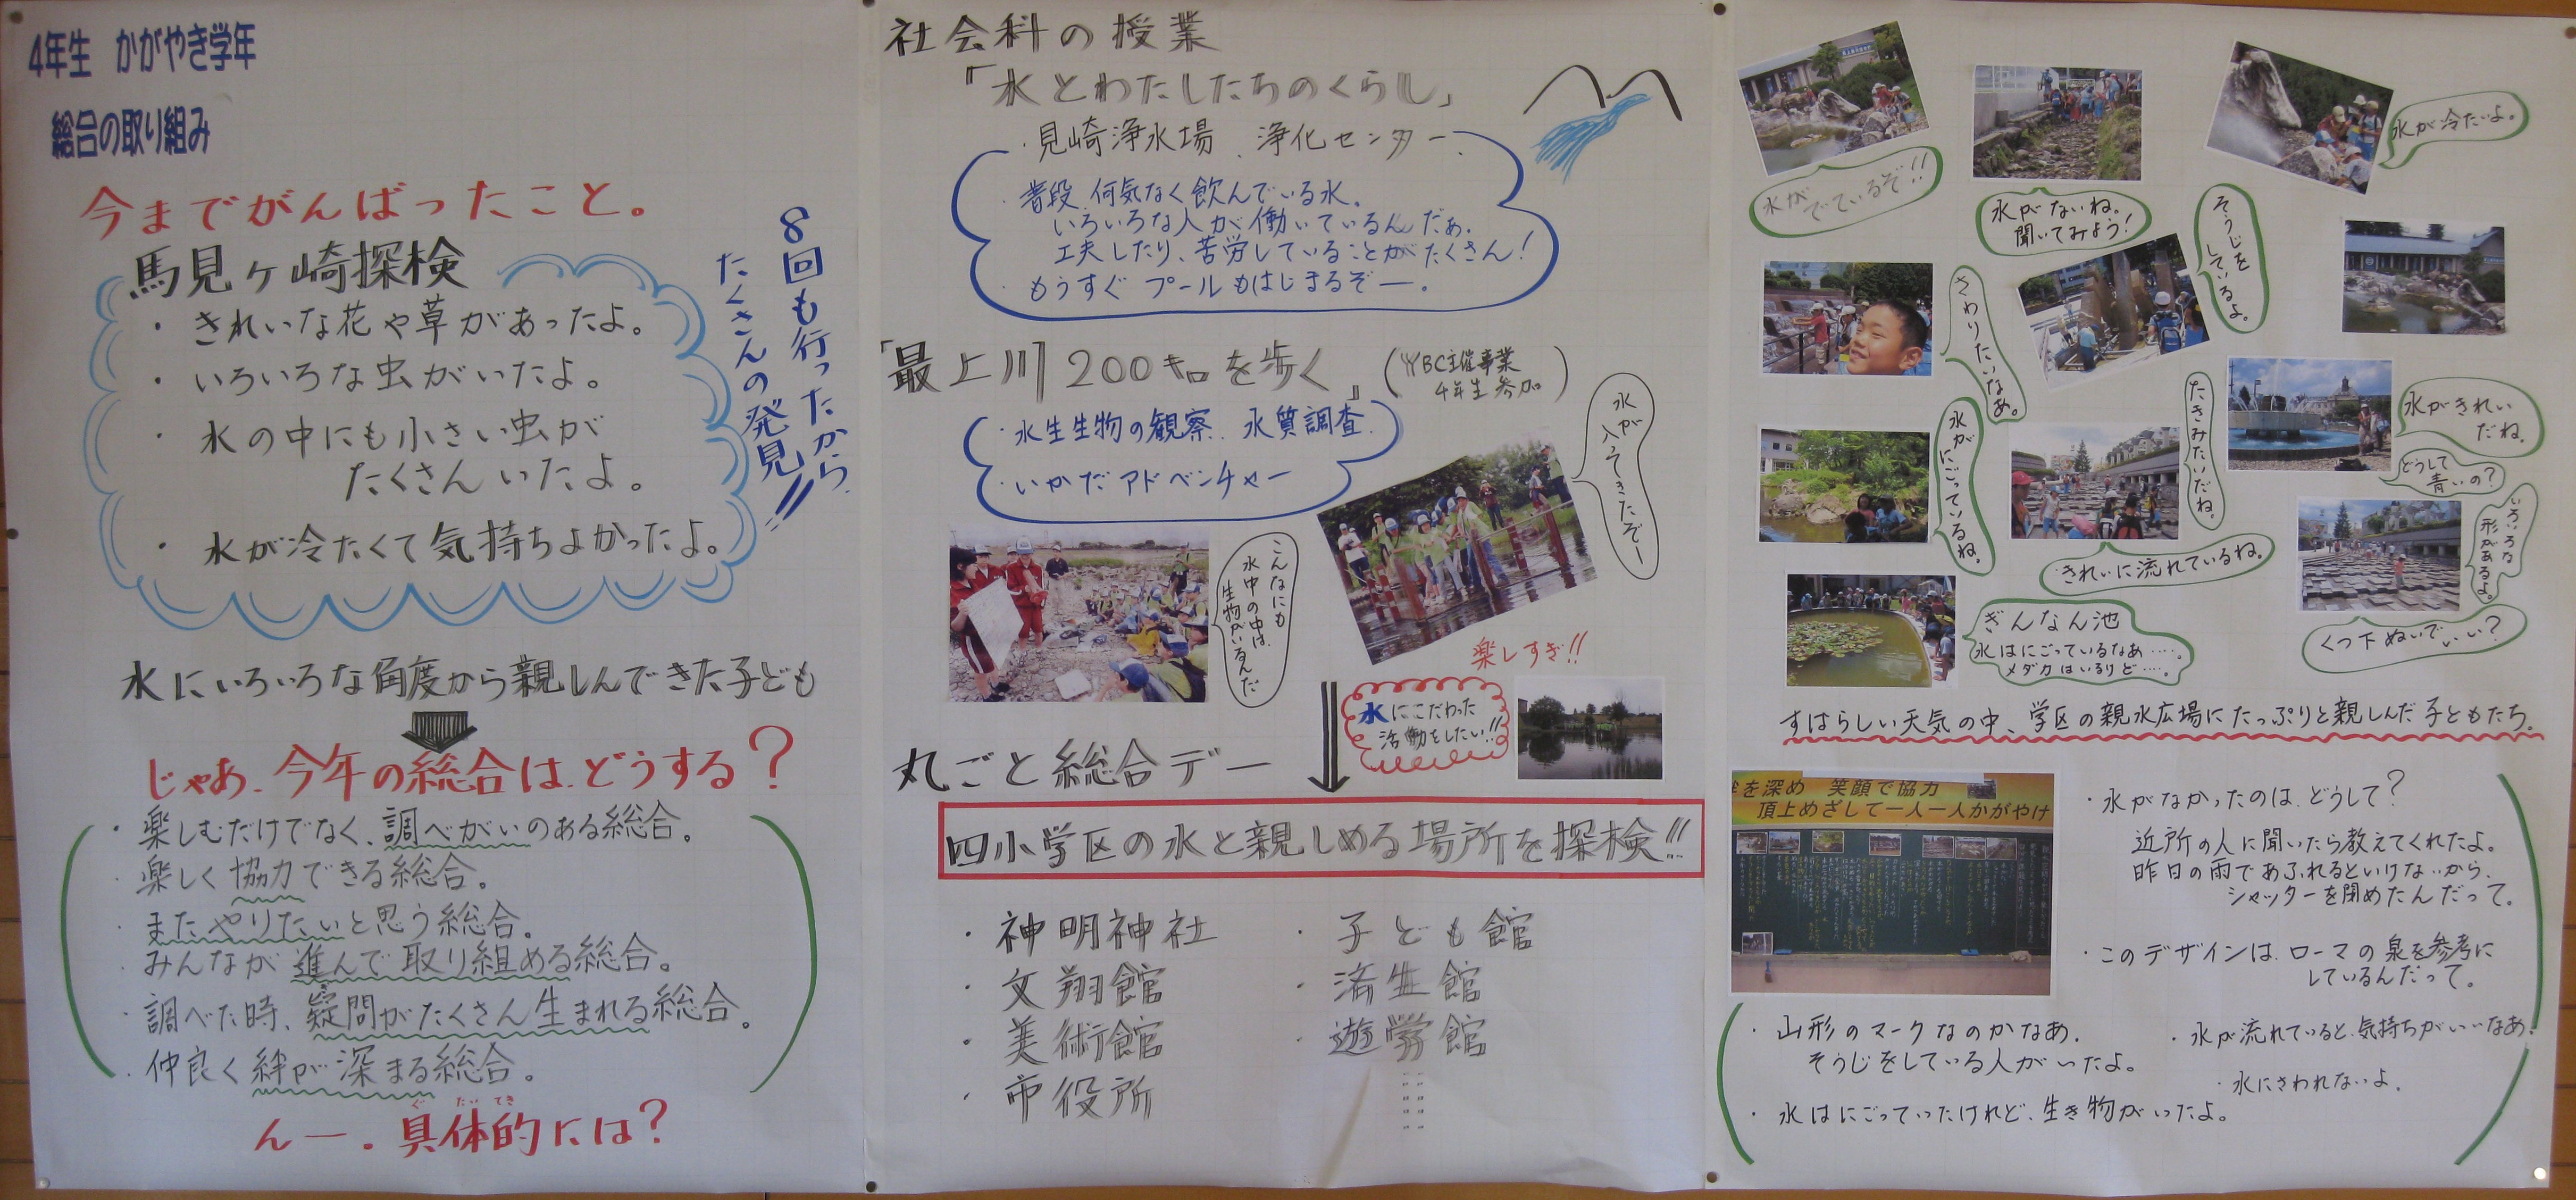 4年生 かがやき学年
総合の取り組み
今までがんばったこと。
馬見ヶ崎探検
・きれいな花や草があったよ。
・いろいろな虫がいたよ。
・水の中にも小さい虫が
たくさんいたよ。
・水が冷たくて気持ちよかったよ。
8回も行ったから、
たくさんの発見!!
水にいろいろな角度から親しんできた子ども
じゃあ、今年の総合は、どうする?
・楽しむだけでなく、調べがいのある総合。
・楽しく協力できる総合。
・またやりたいと思う総合。
・みんなが進んで取り組める総合。
・調べた時、疑問がたくさん生まれる総合。
・仲良く絆が深まる総合。
んー。具体的には?
ぐたいてき
社会科の授業
「水とわたしたちのくらし」
・見崎浄水場、浄化センター、
・普段、何気なく飲んでいる水。
いろいろな人が働いているんだぁ。
工夫したり、苦労していることがたくさん!
・もうすぐプールもはじまるぞー。
「最上川200キロを歩く」
(YBC主催事業
4年生参加)
・水生生物の観察、水質調査、
・いかだアドベンチャー
こんなにも
水中の中は、
生物がいるんだ
水が
入ってきたぞー
楽しすぎ!!
水にこだわった
活動をしたい!!
丸ごと総合デー
四小学区の水と親しめる場所を探検!!
・神明神社
・文翔館
・美術館
・市役所
・子ども館
・済生館
・遊学館
水が
でているぞ!!
水がないね。
聞いてみよう!
水が冷たいよ。
そうじを
しているよ。
さわりたいなあ。
水がにごっているね。
たきみたいだね。
水がきれい
だね。
どうして
青いの?
いろいろな
形があるよ。
きれいに流れているね。
くつ下ぬいでいい?
ぎんなん池
水はにごっているなあ‥‥。
メダカはいるけど‥‥。
すばらしい天気の中、学区の親水広場にたっぷりと親しんだ子どもたち。
を深め 笑顔で協力
頂上めざして一人一人かがやけ
・水がなかったのは、どうして?
近所の人に聞いたら教えてくれたよ。
昨日の雨であふれるといけないから、
シャッターを閉めたんだって。
・このデザインは、ローマの泉を参考に
しているんだって。
・山形のマークなのかなあ。
そうじをしている人がいたよ。
・水はにごっていたけれど、生き物がいたよ。
・水が流れていると、気持ちがいいなあ。
・水にさわれないよ。